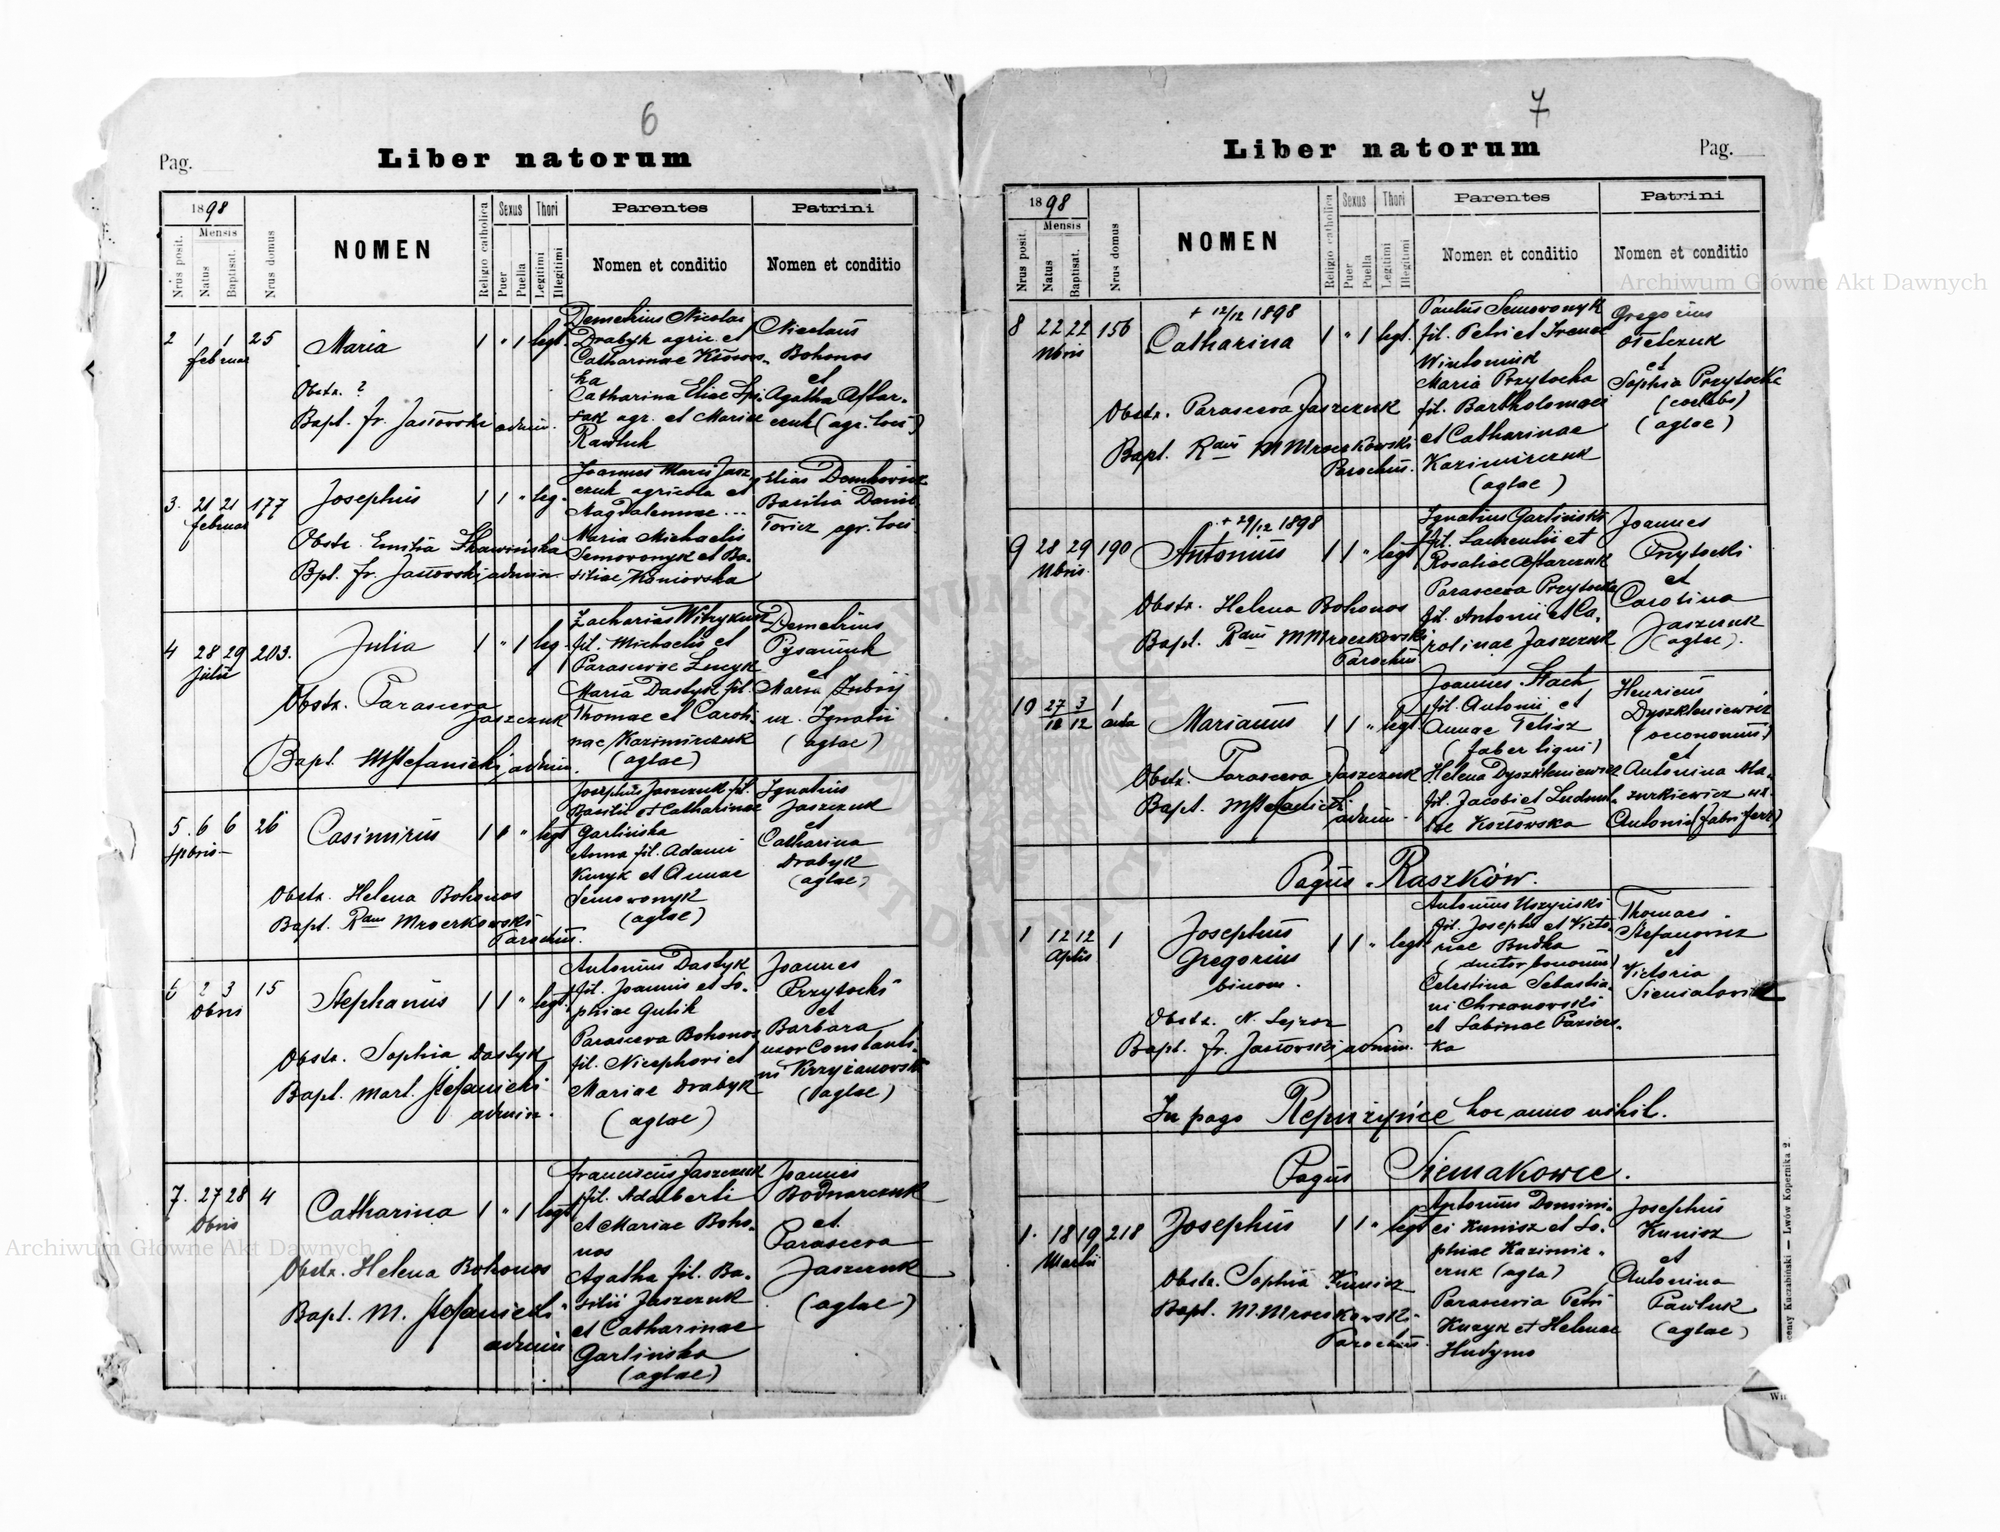 6
Pag.
Liber natorum
1898
Mensis
Nrus posit.
Natus
Baptisat.
Nrus domus
NOMEN
Religio catholica
Sexus
Puer
Puella
Thori
Legitimi
Illegitimi
Parentes
Nomen et conditio
Patrini
Nomen et conditio
2 1 1 25 Maria 1 " 1 legt.
februar
Obstr. ?
Bapt. fr. Jasiovski admin.
Demetrius Nicolai
Drabyk agric. et
Catharinae
Catharina Eliae
agr. et Mariae
Pawluk
Nicolaus
Bohonos
et
Agatha Ostar-
czuk (agr. loci)
3. 21 21 177 Josephus 1 1 " leg.
februar
Obstr. Emilia Skawińska
Bpt. fr. Jasiovski admin.
Joannes Marci Jasz-
czuk agricola et
Magdalennae ...
Maria Michaelis
Semoronyk et Ba-
siliae Kaniovska
Elias
Basilia Danil-
lovicz agr. loci
4 28 29 203. Julia 1 " 1 leg.
julii
Obstr. Parasceva
Jaszczuk
Bapt. MStefanicki admin.
Zacharias Witrykusz
fil. Michaelis et
Parascevae Lucyk
Maria Dastyk fil.
Thomae et Caroli-
nae Kazimirczuk
(aglae)
Demetrius
Pysaniuk
et
Maria
ux. Ignatii
(aglae)
5. 6 6 26 Casimirus 1 1 " legt
7bris
Obstr. Helena Bohonos
Bapt. Rdus Mroczkowski
Parochus.
Josephus Jaszczuk fil.
Basilii et Catharinae
Garlińska
Anna fil. Adami
Kuzyk et Annae
Semoronyk
(aglae)
Ignatius
Jaszczuk
et
Catharina
Drabyk
(aglae)
6 2 3 15 Stephanus 1 1 " legt.
Obris
Obstr. Sophia Dastyk
Bapt. Mart. Stefanicki
admin.
Antonius Dastyk
fil. Joannis et So-
phiae Gulik
Parasceva Bohonos
fil. Nicephori et
Mariae Drabyk
(aglae)
Joannes
Przytocki
et
Barbara
uxor Constanti-
ni Krzyżanovski
(aglae)
7. 27 28 4 Catharina 1 " 1 legt
Obris
Obstr. Helena Bohonos
Bapt. M. Stefanicki
admin
Franciscus Jaszczuk
fil. Adalberti
et Mariae Boho-
nos
Agatha fil. Ba-
silii Jaszczuk
et Catharinae
Garlińska
(aglae)
Joannes
Bodnarczuk
et
Parasceva
Jaszczuk
(aglae)
7
Liber natorum
Pag.
1898
Mensis
Nrus posit.
Natus
Baptisat.
Nrus domus
NOMEN
Religio catholica
Sexus
Puer
Puella
Thori
Legitimi
Illegitimi
Parentes
Nomen et conditio
Patrini
Nomen et conditio
+ 12/12 1898
8 22 22 156 Catharina 1 " 1 legt.
Nbris
Obstr. Parasceva Jaszczuk
Bapt. Rdus MMroczkowski
Parochus.
Paulus Semoronyk
fil. Petri et Irenae
Wintoniuk
Maria Przytocka
fil. Bartholomaei
et Catharinae
Kazimirczuk
(aglae)
Gregorius
et
Sophia Przytocka
(coelebs)
(aglae)
+ 29/12 1898
9 28 29 190 Antonius 1 1 " legt
Nbris
Obstr. Helena Bohonos
Bapt. Rdus MMroczkowski
Parochus
Ignatius Garliński
fil. Laurentii et
Rosaliae Ostarczuk
Parasceva Przytocka
fil. Antonii et Ca-
rolinae Jaszczuk
Joannes
Przytocki
et
Carolina
Jaszczuk
(aglae).
10 27/10 3/12 1 aula Marianus 1 1 " legt
Obstr. Parasceva Jaszczuk
Bapt. MStefanicki
admin.
Joannes Stach
fil. Antonii et
Annae Telisz
(faber ligni)
Helena Dyszkleniewicz
fil. Jacobi et Ludmil-
lae Kozłowska
Henricus
Dyszkleniewicz
(oeconomus)
et
Antonina Ma-
zurkiewicz ux.
Antonii (fabri ferr)
Pagus Raszków.
1 12 12 1 Josephus 1 1 " legt
Aplis
Gregorius
binom.
Obstr. N. Lejzor
Bapt. fr. Jasiovski admin.
Antonius Uszyński
fil. Josephi et Victo-
riae Budka
(ductor bonorum)
Celestina Sebastia-
ni Chrzanovski
et Sabinae
Thomas
Stefanovicz
et
Victoria
In pago Repużyńce hoc anno nihil.
Pagus Siemakowce.
1. 18 19 218 Josephus 1 1 " legt
Martii
Obstr. Sophia Kunisz
Bapt. M. Mroczkowski
Parochus.
Antonius Domini-
ci Kunisz et So-
phiae Kazimir-
czuk (agla)
Parascevia Petri
Kuzyk et Helenae
Hudyma
Josephus
Kunisz
et
Antonina
Pawluk
(aglae)
Kuczabiński — Lwów Kopernika 2.
Archiwum Główne Akt Dawnych
Archiwum Główne Akt Dawnych